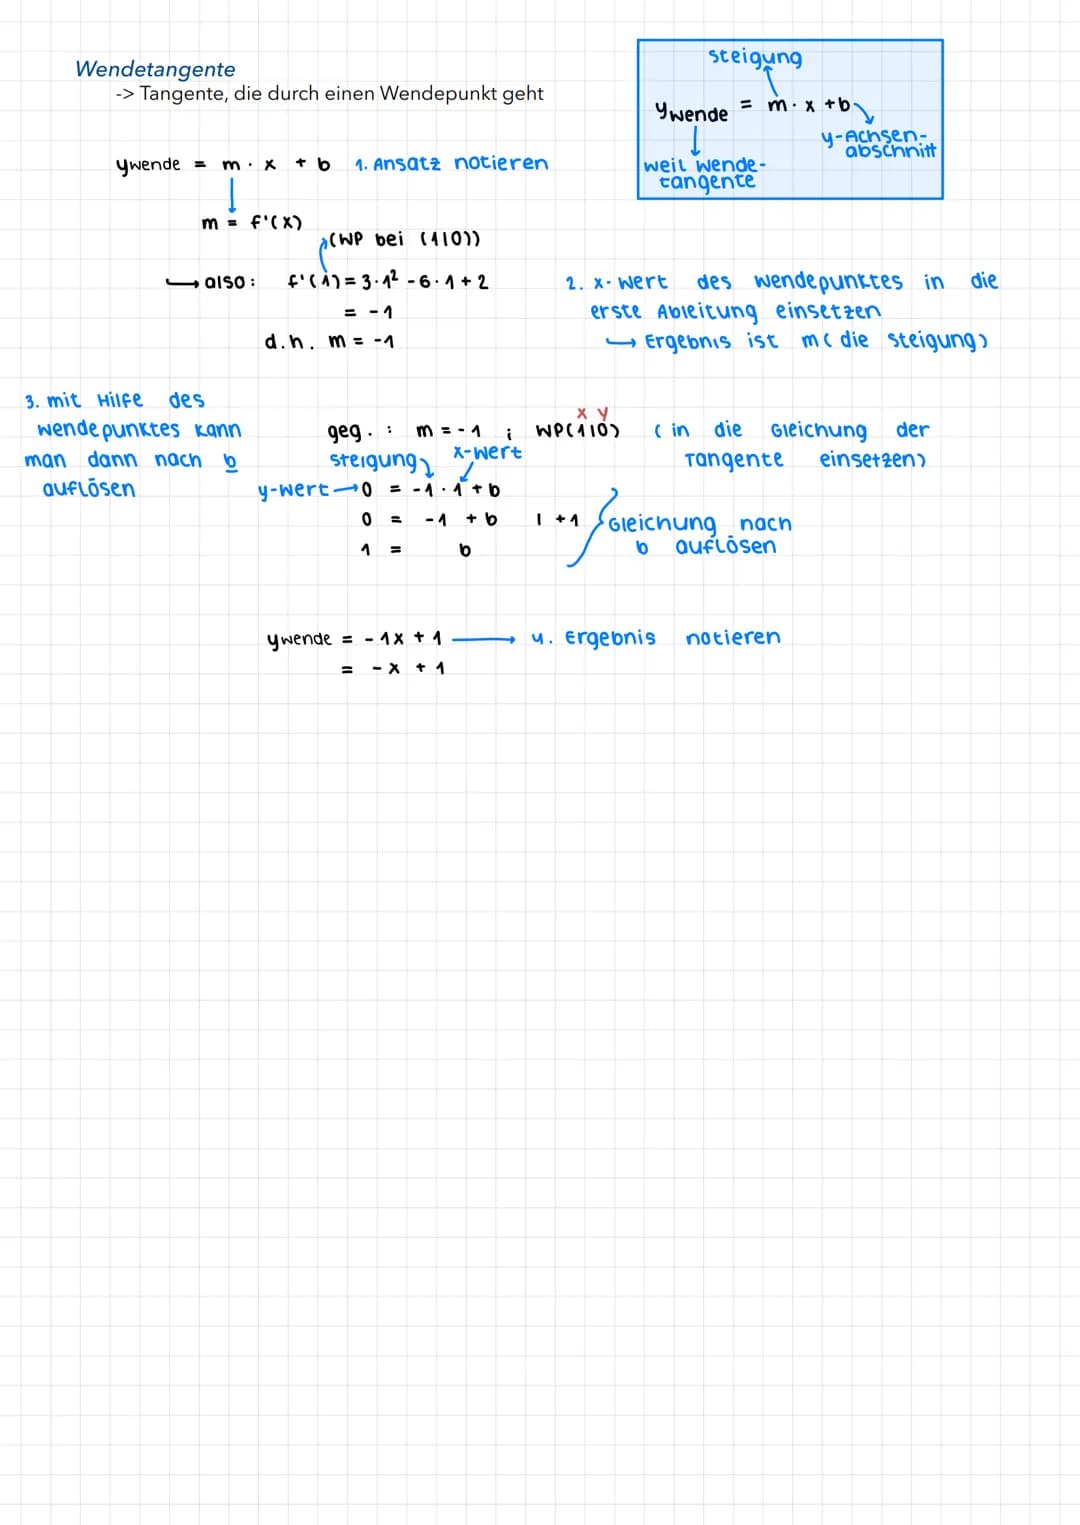 Wendetangente
-> Tangente, die durch einen Wendepunkt geht
steigung
ywende = m · x + b
y-Achsen-
abschnitt
weil wende-
tangente
ywende = m · x + b 1. Ansatz notieren
m = f'(x)
(WP bei (1|0))
↪ also: f'(1) = 3·1² - 6·1 + 2
= -1
d.h. m = -1
2. x-wert des wendepunktes in die
erste Ableitung einsetzen
↪ Ergebnis ist m (die steigung)
3. mit Hilfe des
wendepunktes kann
man dann nach b
auflösen
x y
geg.: m = -1 ; WP(1|0) (in die Gleichung der
Tangente einsetzen)
steigung x-wert
y-wert → 0 = -1 · 1 + b
0 = -1 + b | +1
1 = b
Gleichung nach
b auflösen
ywende = -1x + 1 → 4. Ergebnis notieren
= -x + 1